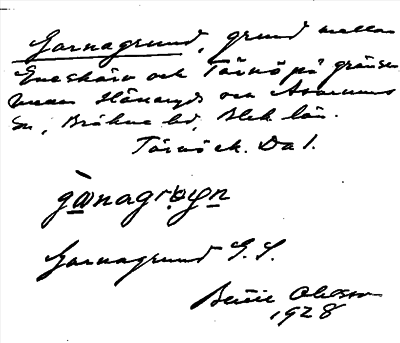 Garnagrund, grund mellan
Eneskärv och Tärnö på gränsen
mellan Hällaryds och Åsarums
sn, Bräkne hd, Blek. län.
Tärnö ek. Da 1.
gàrnagrøyn
Garnagrund G.S.
Bertil Ohlsson
1928